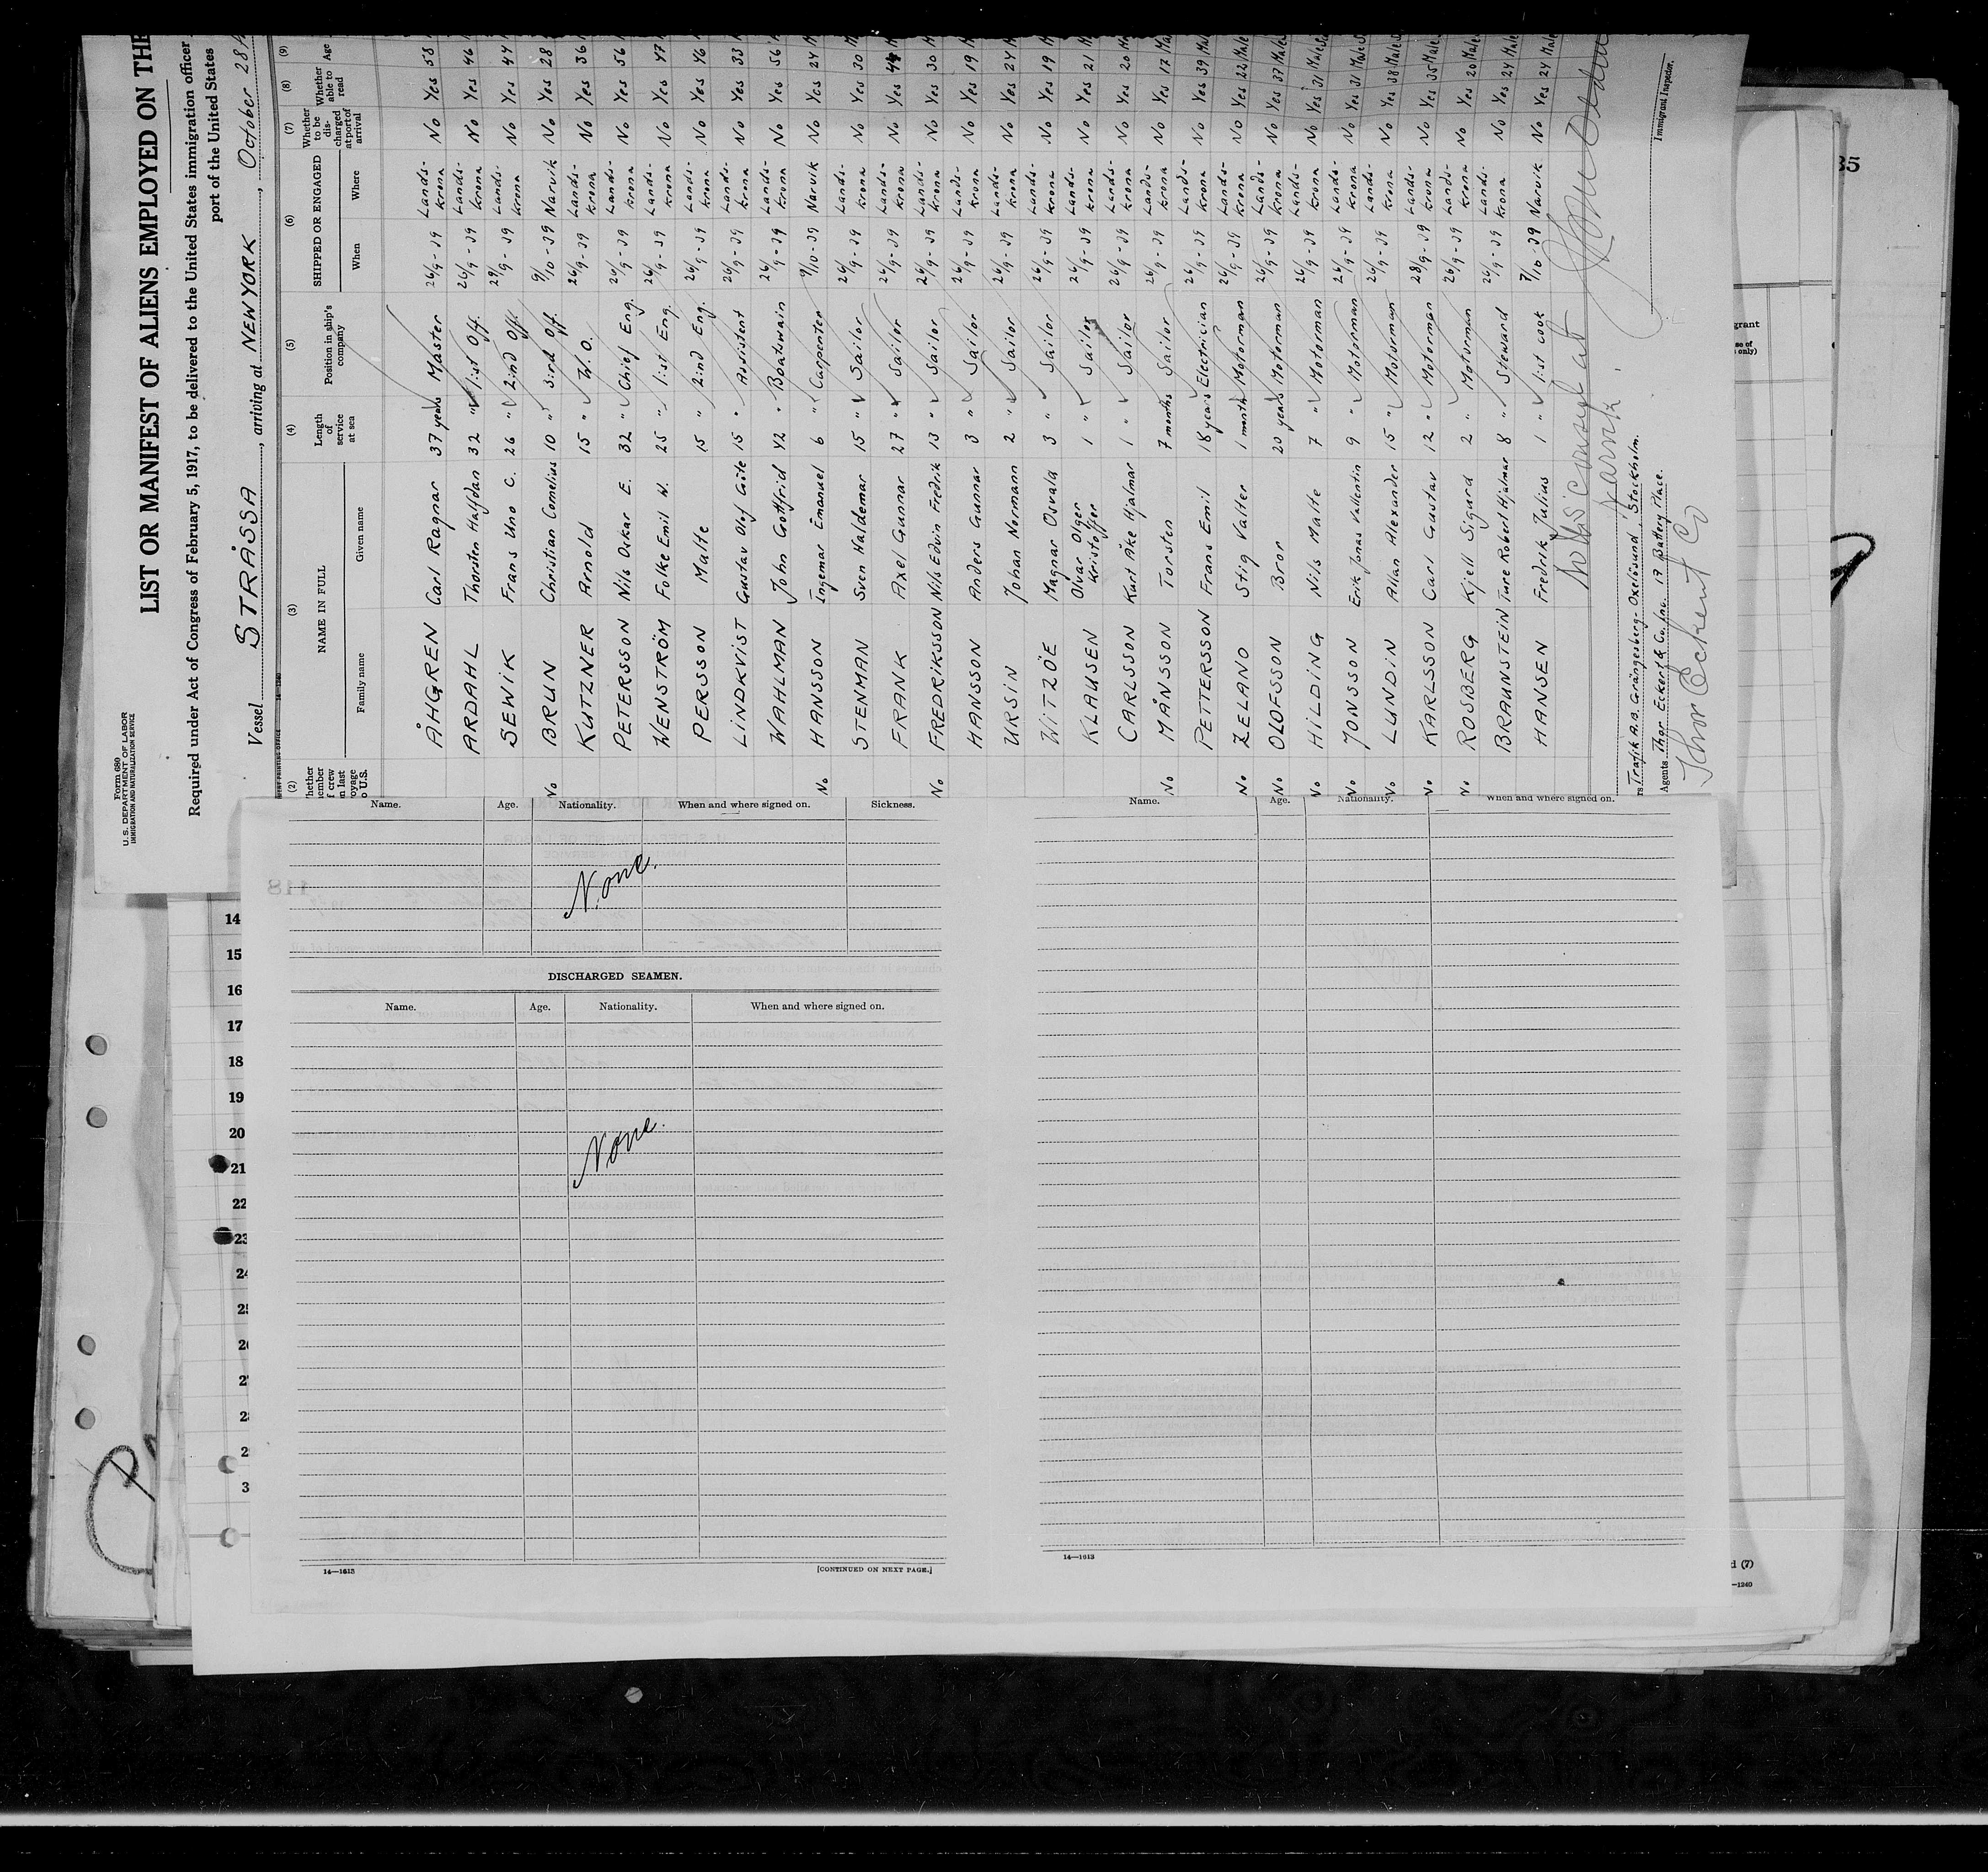 Form 680
U.S. DEPARTMENT OF LABOR
IMMIGRATION AND NATURALIZATION SERVICE
LIST OR MANIFEST OF ALIENS EMPLOYED ON THE
Required under Act of Congress of February 5, 1917, to be delivered to the United States immigration officer
port of the United States
Vessel STRÅSSA, arriving at NEW YORK, October 28
(2) (3) (4) (5) (6) (7) (8) (9)
NAME IN FULL
Family name Given name
Length of service at sea
Position in ship's company
SHIPPED OR ENGAGED
When Where
Whether to be discharged at port of arrival
Whether able to read
Age
ÅHGREN Carl Ragnar 37 years Master 26/9-39 Landskrona No Yes 58
ARDAHL Thorsten Halfdan 32 " 1:st Off. 26/9-39 Landskrona No Yes 46
SEWIK Frans Uno C. 26 " 2:nd Off. 29/9-39 Landskrona No Yes 44
No BRUN Christian Cornelius 10 " 3:rd Off. 9/10-39 Narvik No Yes 28
KUTZNER Arnold 15 " W.O. 26/9-39 Landskrona No Yes 36
PETERSSON Nils Oskar E. 32 " Chief Eng. 26/9-39 Landskrona No Yes 56
WENSTRÖM Folke Emil W. 25 " 1:st Eng. 26/9-39 Landskrona No Yes 47
PERSSON Malte 15 " 2:nd Eng. 26/9-39 Landskrona No Yes 46
LINDKVIST Gustav Olof Göte 15 " Assistent 26/9-39 Landskrona No Yes 33
WAHLMAN John Gottfrid 42 " Boatswain 26/9-39 Landskrona No Yes 56
No HANSSON Ingemar Emanuel 6 " Carpenter 9/10-39 Narvik No Yes 24
STENMAN Sven Haldemar 15 " Sailor 26/9-39 Landskrona No Yes 30
FRANK Axel Gunnar 27 " Sailor 26/9-39 Landskrona No Yes
No FREDRIKSSON Nils Edvin Fredrik 13 " Sailor 26/9-39 Landskrona No Yes 30
HANSSON Anders Gunnar 3 " Sailor 26/9-39 Landskrona No Yes 19
URSIN Johan Normann 2 " Sailor 26/9-39 Landskrona No Yes 24
WITZÖE Magnar Osvald 3 " Sailor 26/9-39 Landskrona No Yes 19
KLAUSEN Olvar Olger Kristoffer 1 " Sailor 26/9-39 Landskrona No Yes 21
CARLSSON Kurt Åke Hjalmar 1 " Sailor 26/9-39 Landskrona No Yes 20
No MÅNSSON Torsten 7 months Sailor 26/9-39 Landskrona No Yes 17
PETTERSSON Frans Emil 18 years Electrician 26/9-39 Landskrona No Yes 39 Male
No ZELAND Stig Valter 1 month Motorman 26/9-39 Landskrona No Yes 22 Male
No OLOFSSON Bror 20 years Motorman 26/9-39 Landskrona No Yes 37 Male
No HILDING Nils Malte 7 " Motorman 26/9-39 Landskrona No Yes 31 Male
No JONSSON Erik Jonas Vallentin 9 " Motorman 26/9-39 Landskrona No Yes 31 Male
No LUNDIN Allan Alexander 15 " Motorman 26/9-39 Landskrona No Yes 38 Male
No KARLSSON Carl Gustav 12 " Motorman 28/9-39 Landskrona No Yes 35 Male
No ROSBERG Kjell Sigurd 2 " Motorman 26/9-39 Landskrona No Yes 20 Male
BRAUNSTEIN Ture Robert Hjalmar 8 " Steward 26/9-39 Landskrona No Yes 24 Male
HANSEN Fredrik Julius 1 " 1:st cook 7/10-39 Narvik No Yes 24 Male
No US consul at
Narvik
Immigrant Inspector.
Trafik A.B. Grängesberg-Oxelösund, Stockholm.
Agents Thor Eckert & Co. Inc. 17 Battery Place.
Thor Eckert Co
Name. Age. Nationality. When and where signed on. Sickness.
None.
DISCHARGED SEAMEN.
Name. Age. Nationality. When and where signed on.
None.
14—1613
[CONTINUED ON NEXT PAGE.]
Name. Age. Nationality. When and where signed on.
14—1613
14
15
16
17
18
19
20
21
22
23
35
(7)
—1240